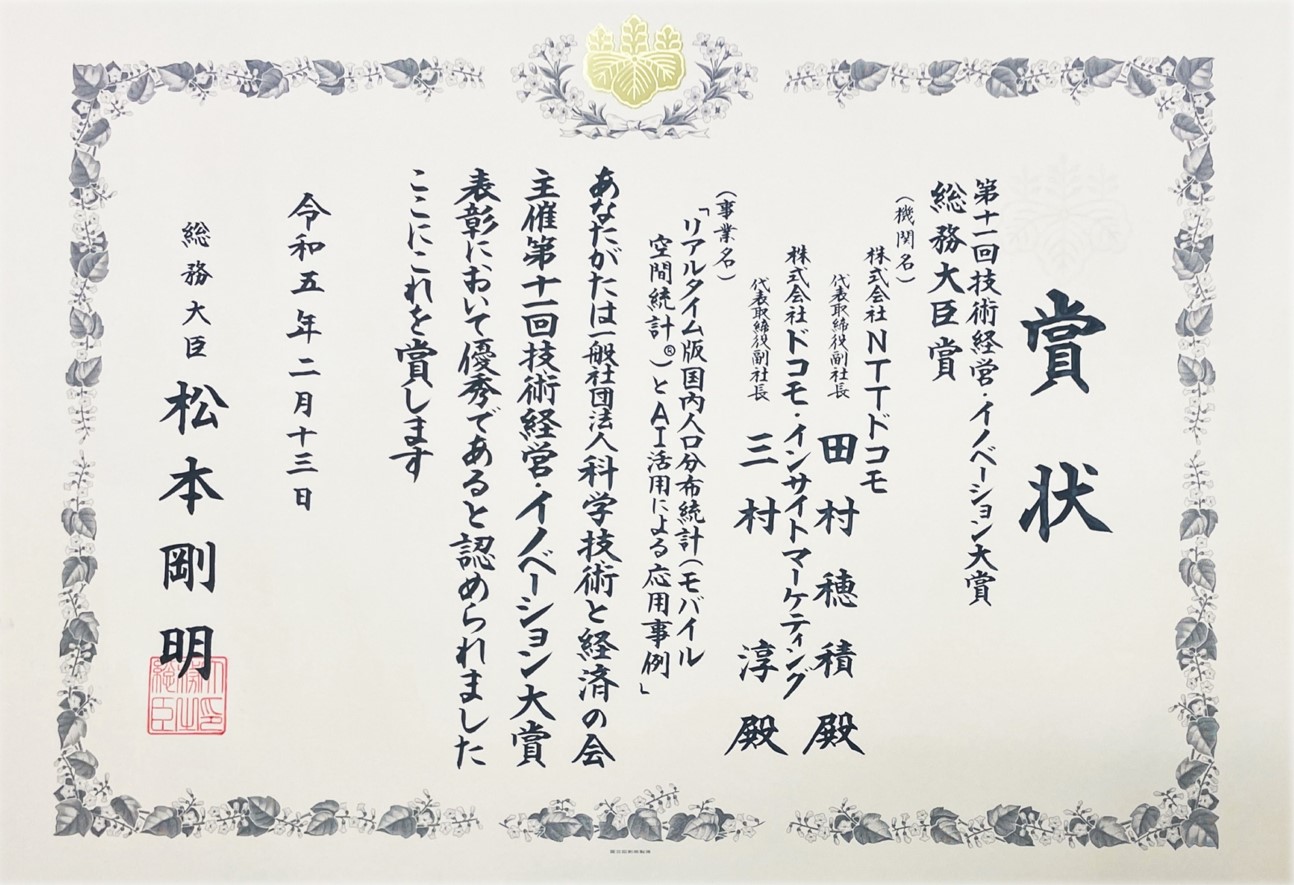 賞状
第十一回技術経営・イノベーション大賞
総務大臣賞
(機関名)
株式会社NTTドコモ
代表取締役副社長 田村穂積殿
株式会社ドコモ・インサイトマーケティング
代表取締役副社長 三村淳殿
(事業名)
「リアルタイム版国内人口分布統計(モバイル
空間統計®)とAI活用による応用事例」
あなたがたは一般社団法人科学技術と経済の会
主催第十一回技術経営・イノベーション大賞
表彰において優秀であると認められました
ここにこれを賞します
令和五年二月十三日
総務大臣 松本剛明